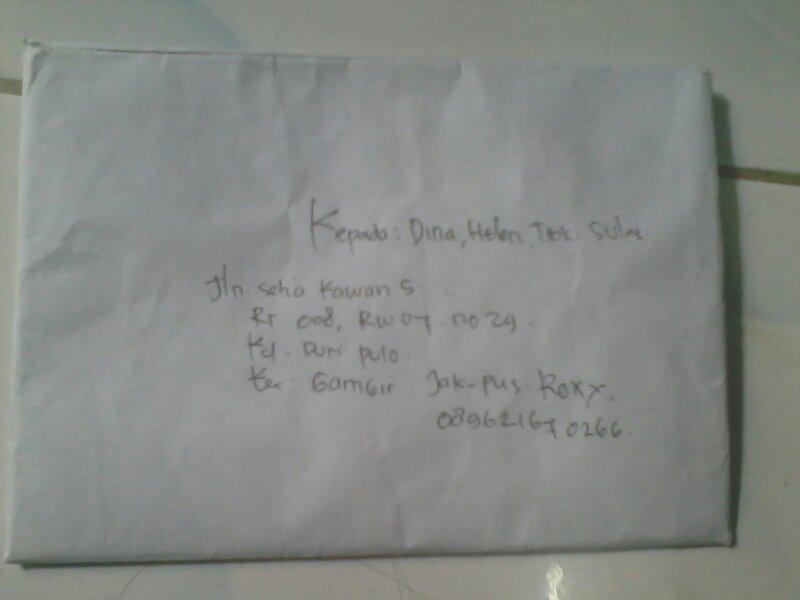 Kepada: Dina, Helen, Tek. Sulas
Jln. setia Kawan 5.
RT 008, RW 07. no 29.
Kel. Duri pulo.
Kec. Gambir Jak-pus. Roxy.
089621670266.